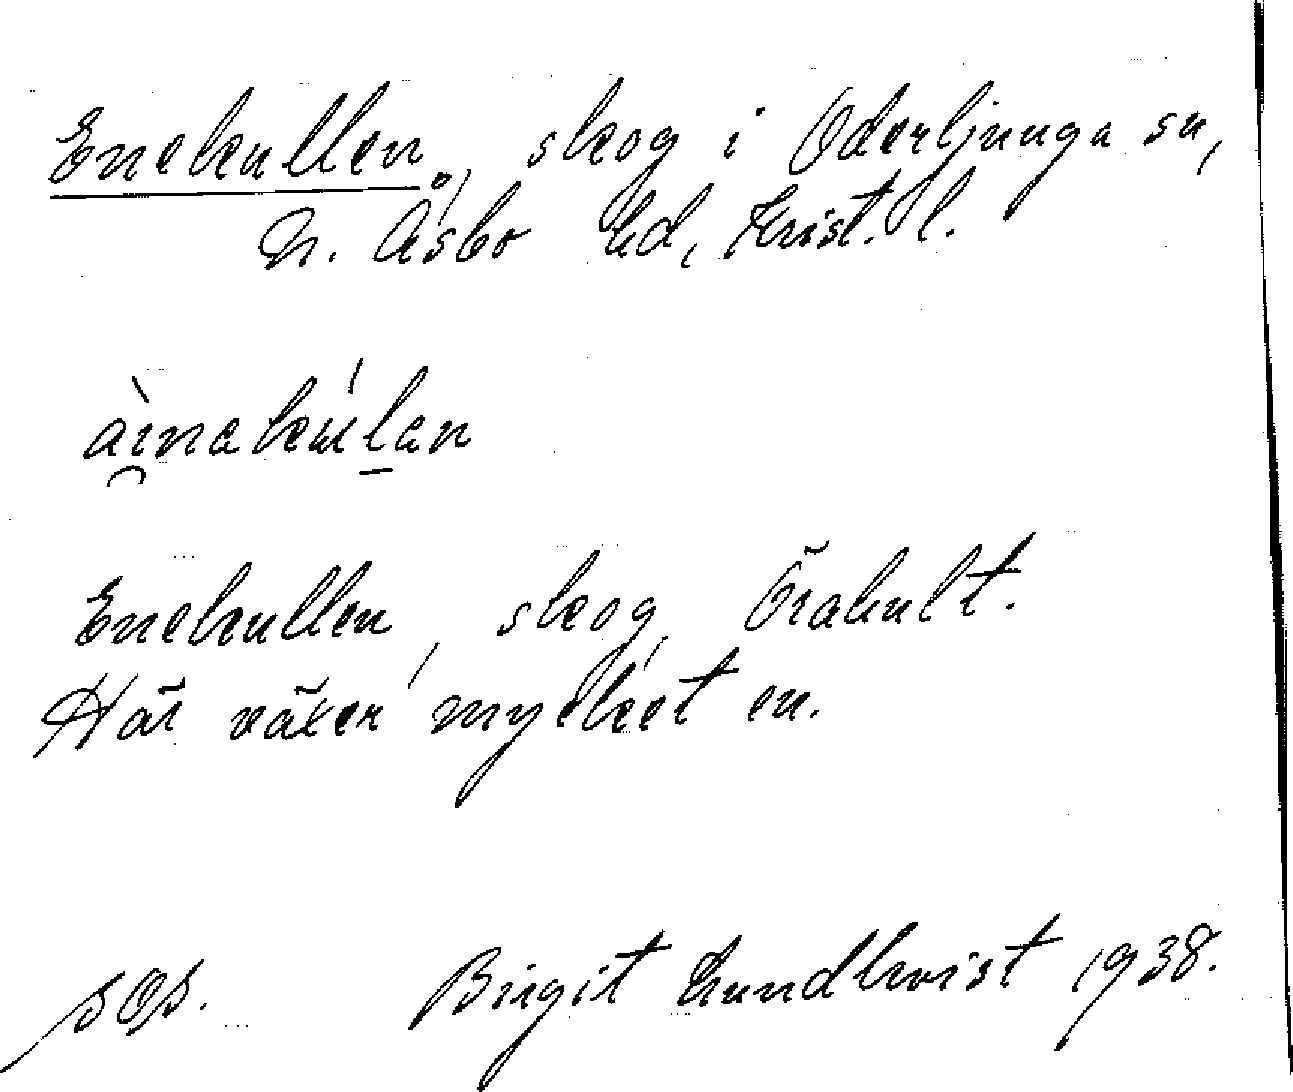 Enekullen, skog i Oderljunga sn,
N. Åsbo hd, Krist. l.
àinakúlan
Enekullen, skog, Örahult.
Här växer mycket en.
Birgit Lundkvist 1938.